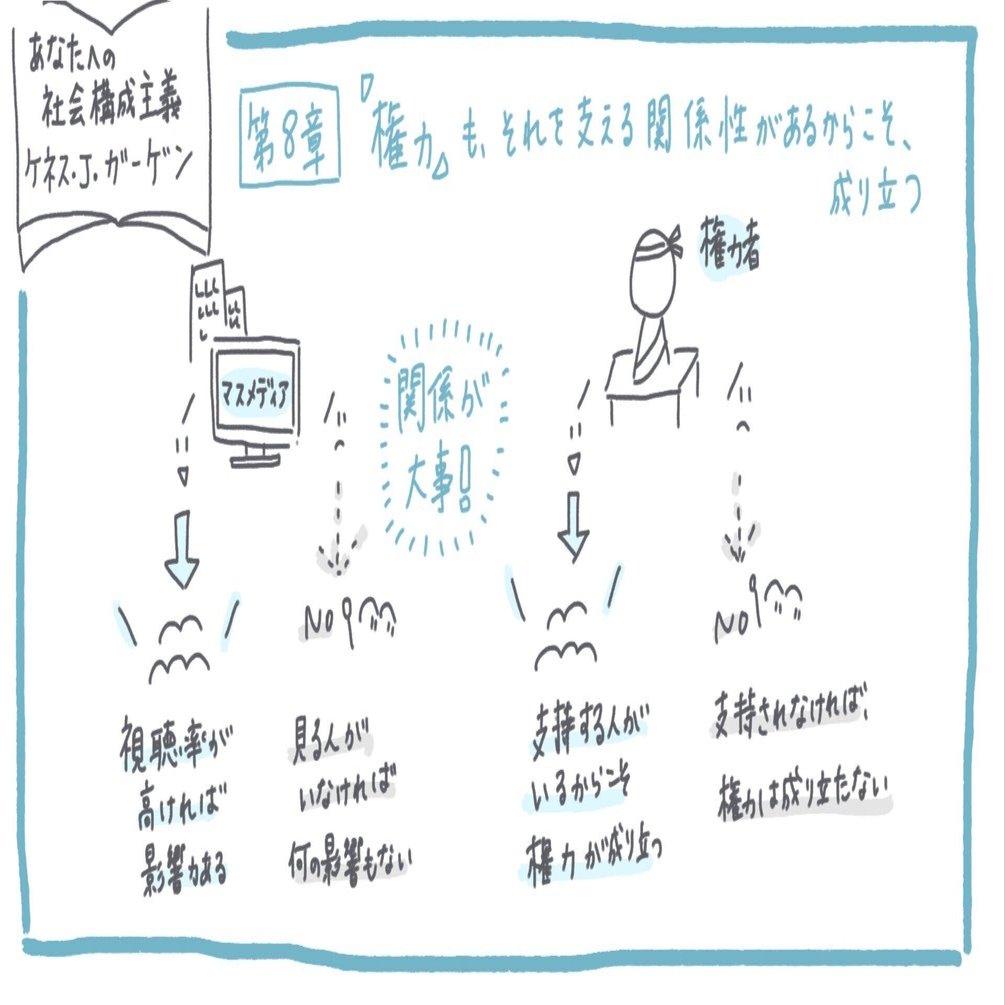 あなたへの
社会構成主義
ケネス・J・ガーゲン
第8章
『権力』も、それを支える関係性があるからこそ、
成り立つ
権力者
マスメディア
関係が
大事!
No
No
視聴率が
高ければ
影響力ある
見る人が
いなければ
何の影響もない
支持する人が
いるからこそ
権力が成り立つ
支持されなければ、
権力は成り立たない